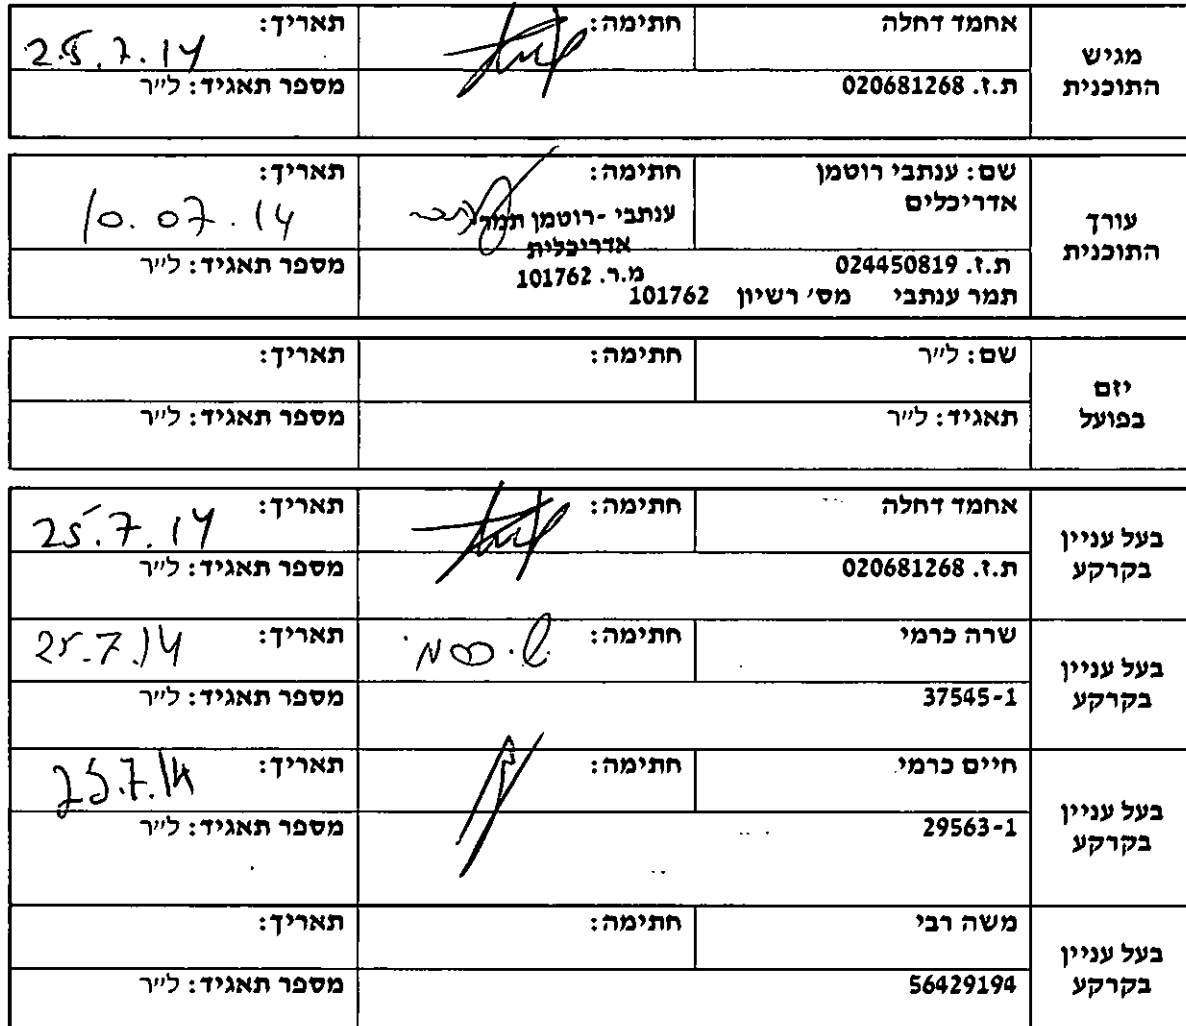 מגיש התוכנית
אחמד דחלה חתימה: תאריך: 25.7.14
ת.ז. 020681268 מספר תאגיד: ל״ר
עורך התוכנית
שם: ענתבי רוטמן אדריכלים חתימה: תאריך: 10.07.14
ענתבי -רוטמן תמר
אדריכלית
מ.ר. 101762
ת.ז. 024450819 מספר תאגיד: ל״ר
תמר ענתבי מס׳ רשיון 101762
יזם בפועל
שם: ל״ר חתימה: תאריך:
תאגיד: ל״ר מספר תאגיד: ל״ר
בעל עניין בקרקע
אחמד דחלה חתימה: תאריך: 25.7.14
ת.ז. 020681268 מספר תאגיד: ל״ר
בעל עניין בקרקע
שרה כרמי חתימה: תאריך: 25.7.14
37545-1 מספר תאגיד: ל״ר
בעל עניין בקרקע
חיים כרמי חתימה: תאריך: 25.7.14
29563-1 מספר תאגיד: ל״ר
בעל עניין בקרקע
משה רבי חתימה: תאריך:
56429194 מספר תאגיד: ל״ר